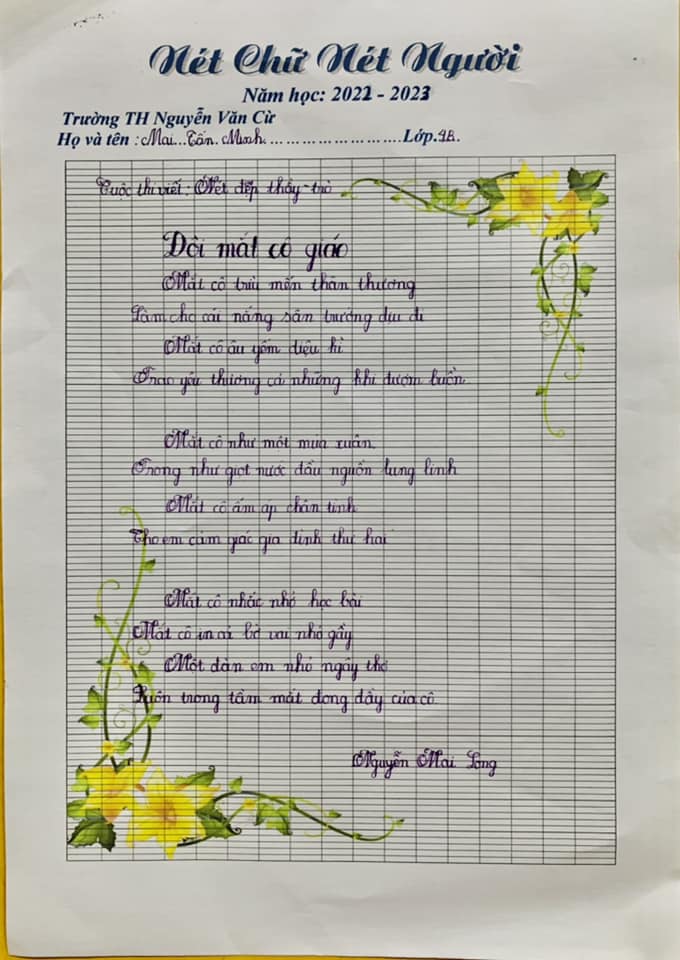 Nét Chữ Nét Người
Năm học: 2022 - 2023
Trường TH Nguyễn Văn Cừ
Họ và tên : Mai...Tấn..Minh. ... ... ... ... ... ... ....Lớp.4B.
Cuộc thi viết: Nét đẹp thầy - trò
Đôi mắt cô giáo
Mắt cô trìu mến thân thương
Làm cho cái nắng sân trường dịu đi
Mắt cô âu yếm diệu kì
Trao yêu thương cả những khi đượm buồn
Mắt cô như một mùa xuân
Trong như giọt nước đầu nguồn lung linh
Mắt cô ấm áp chân tình
Cho em cảm giác gia đình thứ hai
Mắt cô nhắc nhở học bài
Mắt cô in cả bờ vai nhỏ gầy
Một đàn em nhỏ ngây thơ
Luôn trong tầm mắt đong đầy của cô.
Nguyễn Mai Long